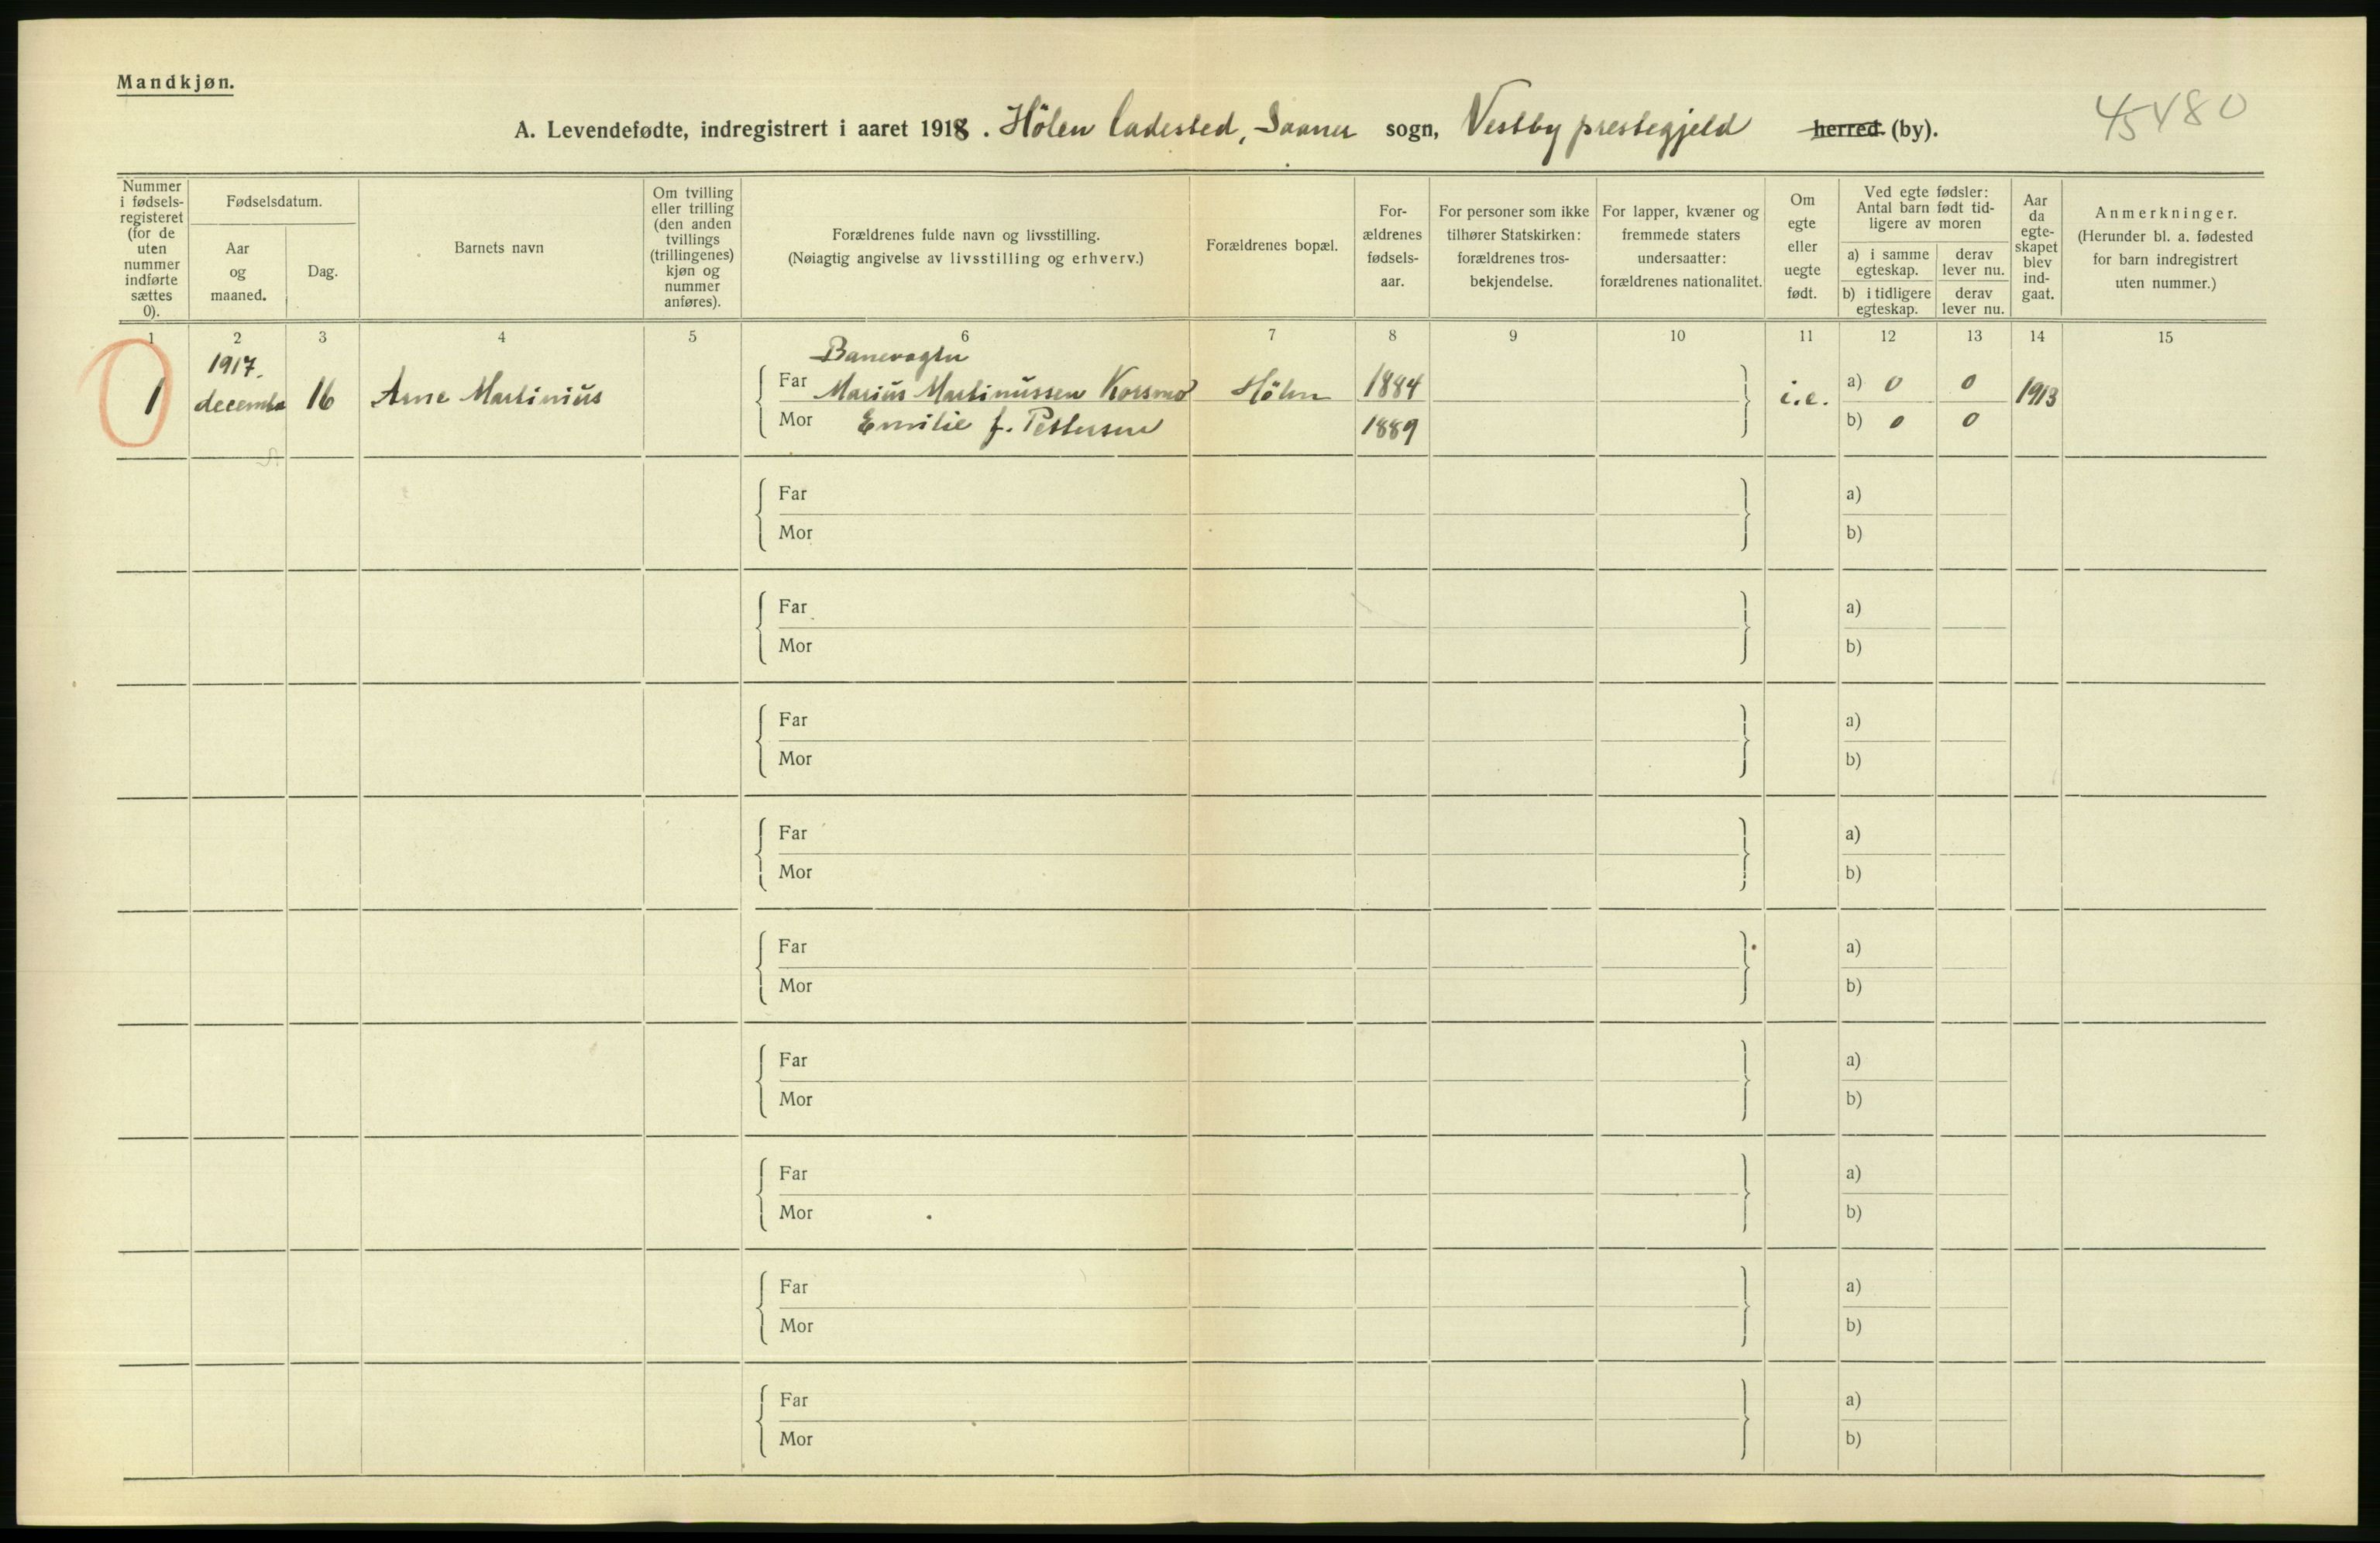 Mandkjøn.
A. Levendefødte, indregistrert i aaret 1918. Hölen ladested, Saaner sogn, Vestby prestegjeld herred (by).
45480
Nummer i fødsels-registeret (for de uten nummer indførte sættes 0).
Fødselsdatum.
Aar og maaned.
Dag.
Barnets navn
Om tvilling eller trilling (den anden tvillings (trillingenes) kjøn og nummer anføres).
Forældrenes fulde navn og livsstilling.
(Nøiagtig angivelse av livsstilling og erhverv.)
Forældrenes bopæl.
For-ældrenes fødsels-aar.
For personer som ikke tilhører Statskirken: forældrenes tros-bekjendelse.
For lapper, kvæner og fremmede staters undersaatter: forældrenes nationalitet.
Om egte eller uegte født.
Ved egte fødsler: Antal barn født tid-ligere av moren
a) i samme egteskap.
derav lever nu.
b) i tidligere egteskap.
derav lever nu.
Aar da egte-skapet blev ind-gaat.
Anmerkninger.
(Herunder bl. a. fødested for barn indregistrert uten nummer.)
1 2 3 4 5 6 7 8 9 10 11 12 13 14 15
1917. Banevogter
1 december 16 Arne Martinius Far Marius Martinussen Korsmo Hölen 1884 i.e. a) 0 0 1913
Mor Emilie f. Pettersen 1889 b) 0 0
Far a)
Mor b)
Far a)
Mor b)
Far a)
Mor b)
Far a)
Mor b)
Far a)
Mor b)
Far a)
Mor b)
Far a)
Mor b)
Far a)
Mor b)
Far a)
Mor b)